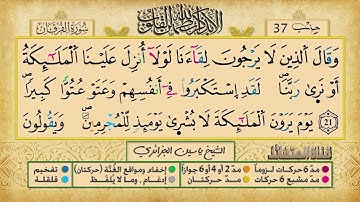 سُورَةُ الفُرْقَان
أَلَا بِذِكْرِ اللَّهِ تَطْمَئِنُّ الْقُلُوبُ
حزب 37
وَقَالَ ٱلَّذِينَ لَا يَرْجُونَ لِقَآءَنَا لَوْلَآ أُنزِلَ عَلَيْنَا ٱلْمَلَٰٓئِكَةُ
أَوْ نَرَىٰ رَبَّنَا ۗ لَقَدِ ٱسْتَكْبَرُوا۟ فِىٓ أَنفُسِهِمْ وَعَتَوْ عُتُوًّا كَبِيرًا ۝
21 يَوْمَ يَرَوْنَ ٱلْمَلَٰٓئِكَةَ لَا بُشْرَىٰ يَوْمَئِذٍ لِّلْمُجْرِمِينَ وَيَقُولُونَ
الشيخ ياسين الجزائري
مدّ 6 حركات لزوماً
مدّ 2 أو 4 أو 6 جوازاً
إخفاء، ومواقع الغُنَّة (حركتان)
تفخيم
مدّ مشبع 6 حركات
مدّ حركتان
إدغام ، وما لا يُلفَظ
قلقلة